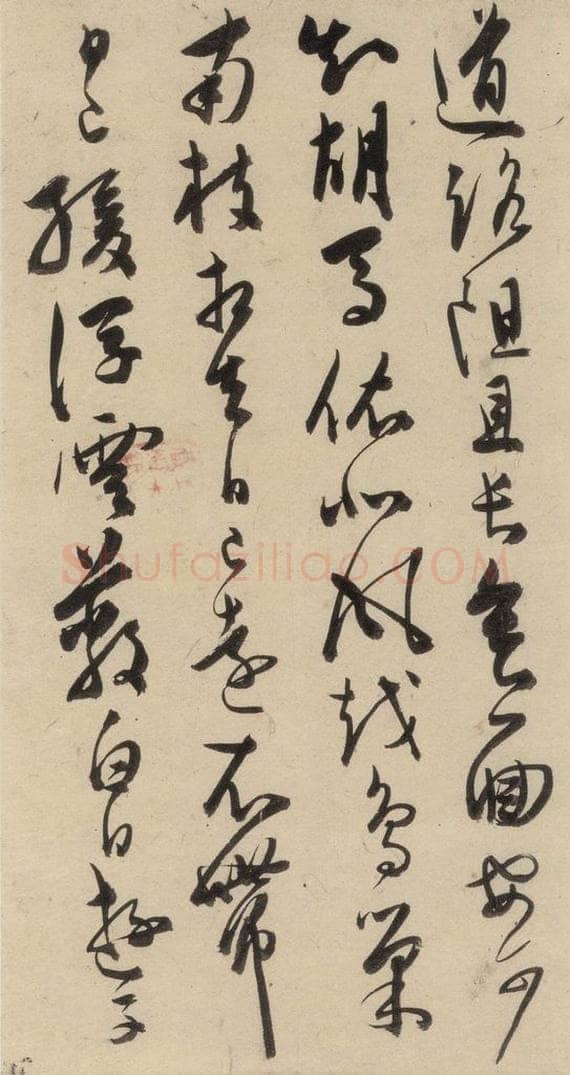 道路阻且長會面安可
知胡馬依北風越鳥巢
南枝相去日已遠衣帶
日已緩浮雲蔽白日遊子
Shufaziliao.COM